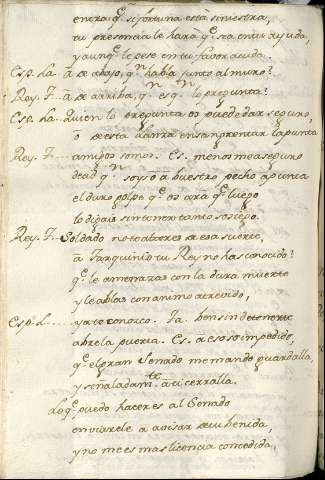 entra q.e si fortuna está siniestra,
tu presencia le hara q.e sea en tu ayuda,
y aunq.e le pese en tu favor acuda.
Esp. La. â de abajo, q.n habla junto al muro?
Rey. F. â de arriba, q.n es q.n lo pregunta?
Esp. La. Quien lo pregunta os puede dar seguro,
o de esta lanza ensangrentar la punta
Rey. F. amigos somos. Es. menos me aseguro
decid q.n sois ô a vuestro pecho apunta
el duro golpe q.e os ara q.e luego
lo digais sin tener tanto sosiego.
Rey. F. Soldado no te alteres de esa suerte,
â Tarquino tu Rey no has conocido?
q.e le amenazas con la dura muerte
y le ablas con animo atrevido,
Esp. L. ya te conozco. Ta. ven sin detenerte
abre la puerta. Es. a eso soi impedido,
q.e el gran Senado me mandó guardalla,
y señaladam.te a ti cerralla.
Lo q.e puedo hacer es al Senado
enviarele a avisar de tu benida,
y no me es mas licencia concedida,